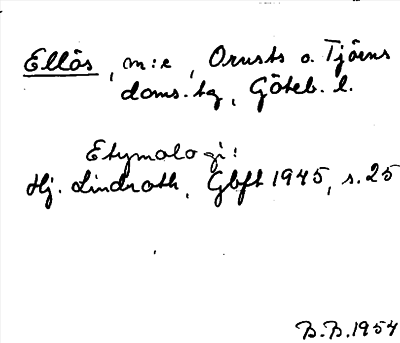 Ellös, m:e, Orusts o. Tjörns
doms.tg, Göteb. l.
Etymologi:
Hj. Lindroth, Gbft 1945, s. 25
B.B. 1954